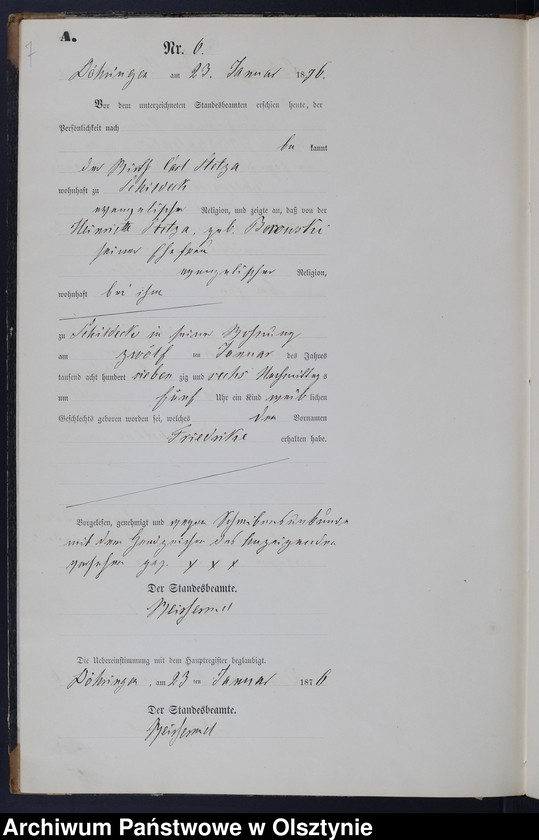 7
A.
Nr. 6.
Döhringen am 23. Januar 1876.
Vor dem unterzeichneten Standesbeamten erschien heute, der
Persönlichkeit nach
be kannt
der Wirth Carl
wohnhaft zu Schildeck
evangelischer Religion, und zeigte an, daß von der
Henriette geb. Borowski
seiner Ehefrau
evangelischer Religion,
wohnhaft bei ihm
zu Schildeck in seiner Wohnung
am zwölf ten Januar des Jahres
tausend acht hundert sieben zig und sechs Nachmittags
um fünf Uhr ein Kind weib lichen
Geschlechts geboren worden sei, welches den Vornamen
Friedrike erhalten habe.
Vorgelesen, genehmigt und wegen Schreibensunkunde
mit dem Handzeichen des Anzeigenden
versehen gez. x x x
Der Standesbeamte.
Die Uebereinstimmung mit dem Hauptregister beglaubigt.
Döhringen, am 23 ten Januar 1876
Der Standesbeamte.
Archiwum Państwowe w Olsztynie